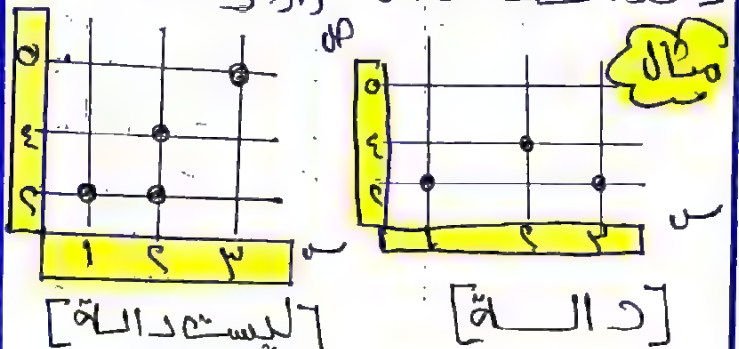 مثال
ص
٥
٤
٢
١ ٢ ٣
س
[دالة]
٥
٤
٢
١ ٢ ٣
س
[ليست دالة]